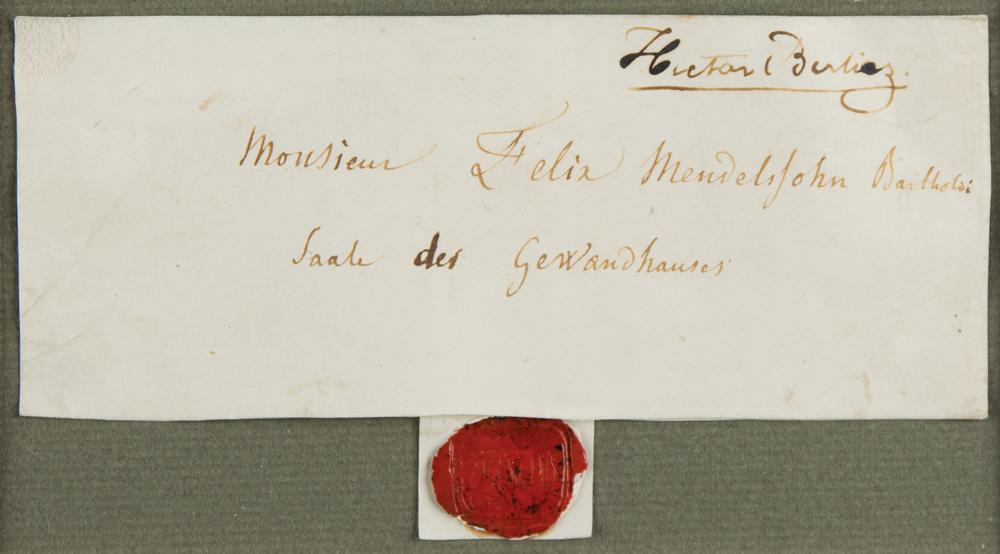 Hector Berlioz.
Monsieur Felix Mendelssohn Bartholdi
Saale des Gewandhauses